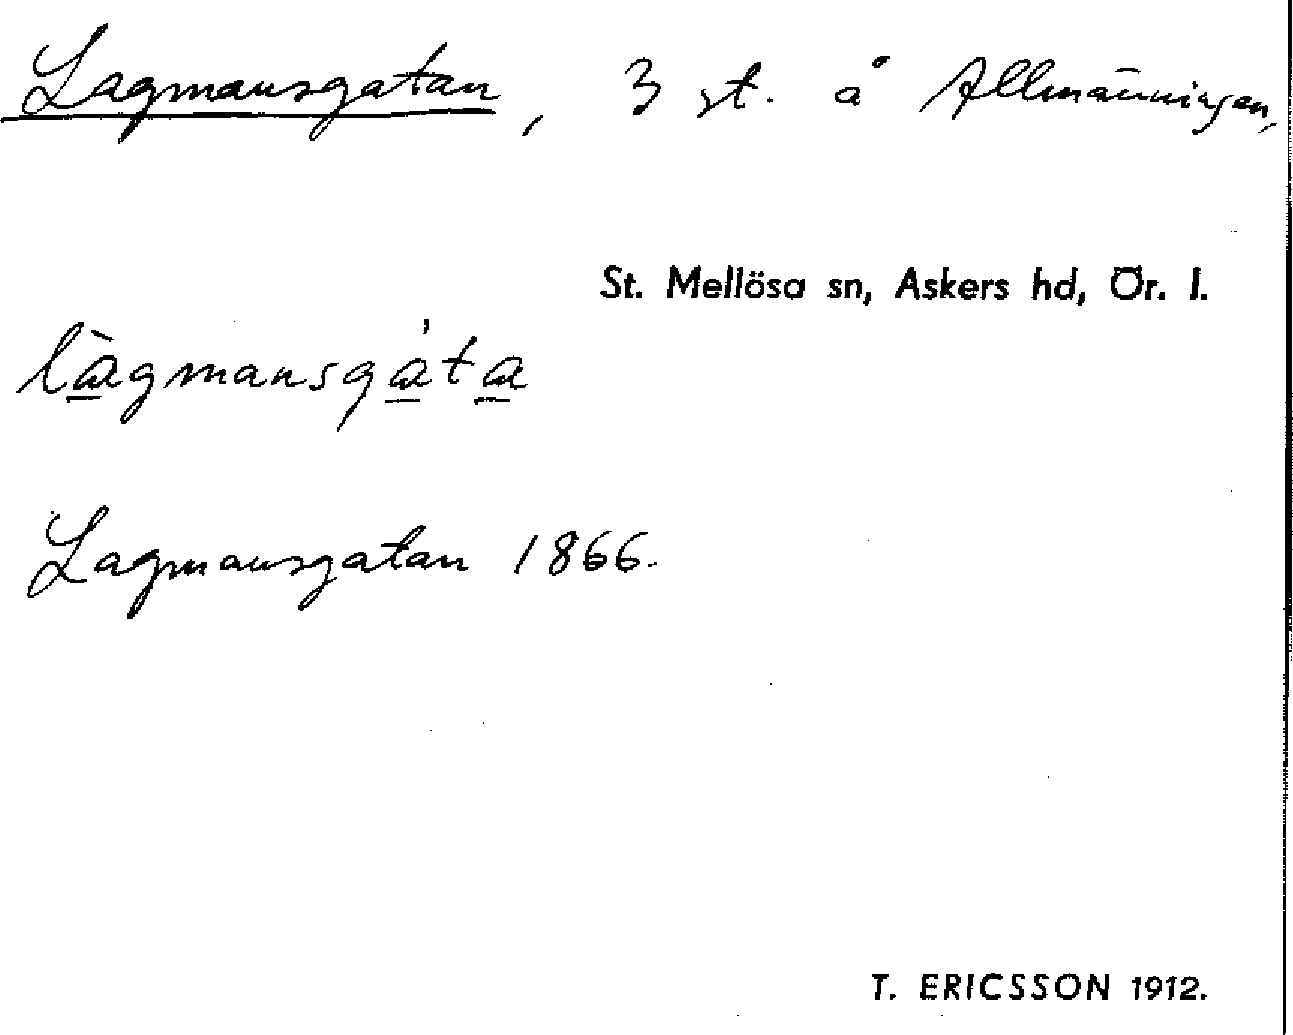 Lagmansgatan, 3 st. å Allmänningen,
St. Mellösa sn, Askers hd, Ör. l.
làgmansgáta
Lagmansgatan 1866.
T. ERICSSON 1912.